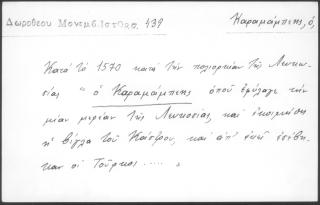 Δωροθέου Μονεμβ. Ιστορ. 439
Καραμάμπεης, ὁ,
Κατὰ τὸ 1570 κατὰ τὴν πολιορκίαν τῆς Λευκω-
σίας "ὁ Καραμάμπεης ὁποῦ ἐφύλαγε τὴν
μίαν μερίαν τῆς Λευκοσίας, καὶ ἐκοιμήθη
ἡ βίγλα τοῦ Κάστρου, καὶ ἀπ' ἐκεῖ ἐσέβη-
καν οἱ Τοῦρκοι.....